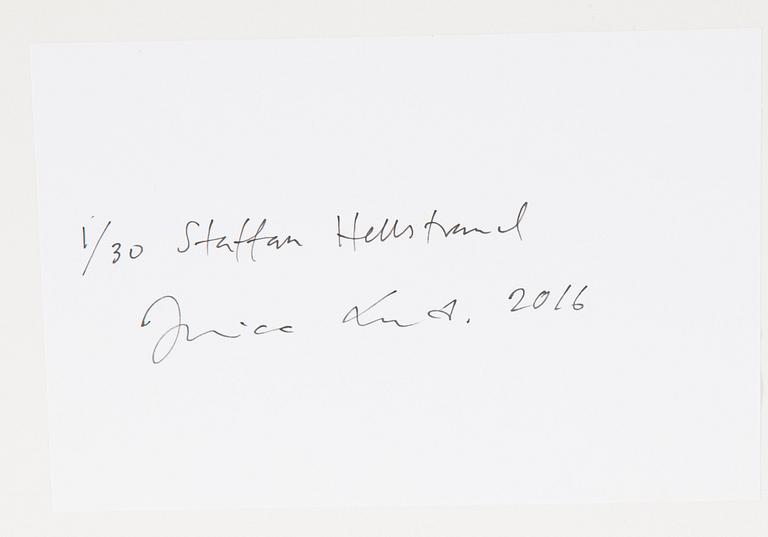 1/30 Staffan Hellstrand
2016